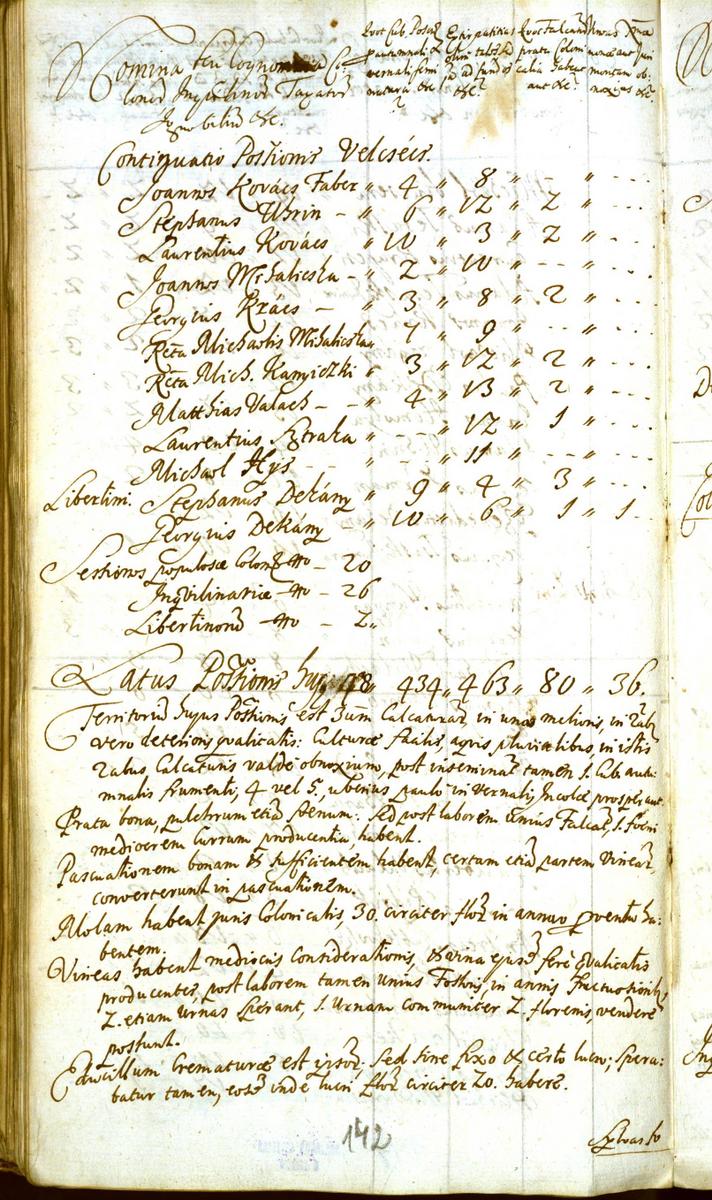 Nomina seu Cognomina Co-
lonorū Inqvilinorū Taxatorū
Ignobilium &c.
Quot Cub. Poson.
autumnali &
vernali semi-
naturæ &c
Exstirpatitias
in ad fundos
&c.
Quot Falcarū
prata Coloni-
calia habeat
aut &c
Urnas
montanæ aut
montanū ob-
noxias &c
Contiguatio Possionis Velcsécs.
Joannes Kovács Faber 〃 4 〃 8 〃 - - 〃 - - -
Stephanus Uhrin - 〃 6 〃 12 〃 2 〃 - - -
Laurentius Kovács 〃 10 〃 3 〃 2 〃 - - -
Joannes Mihalicska - 〃 2 〃 10 〃 - - 〃 - - -
Georgius Krács - 〃 3 〃 8 〃 2 〃 - - -
Rcta Michaelis Mihalicska 〃 7 〃 9 〃 - - 〃 - - -
Rcta Mich. Kanyiczki 〃 3 〃 12 〃 2 〃 - - -
Matthias Valach - - 〃 4 〃 13 〃 2 〃 - - -
Laurentius Sztraka 〃 - - 〃 12 〃 1 〃 - - -
Michael Hys - - 〃 - - 〃 11 〃 - - 〃 - - -
Libertini. Stephanus Dekány 〃 9 〃 4 〃 3 〃 - - -
Georgius Dekány - 〃 10 〃 6 〃 1 〃 1 - -
Sessiones populosæ Colon. No - 20
Inqvilinariæ - No - 26
Libertinorū - No - 2〃
Latus Possionis huj. 48〃 434〃 463〃 80 〃 36.
Territoriū hujus Possionis est 3um Calcaturarū, in una melioris, in 2ab9
vero deterioris qvalitatis: Culturæ facilis, aqvis pluvialibus, in istis
2abus Calcaturis valdè obnoxium, post inseminat. tamen 1. Cub. autu-
mnalis frumenti, 4 vel 5, uberius paulò in vernali, Incolæ prosperant.
Prata bona, pulchrum etiā fœnum: sed post laborem unius Falcat. 1. fœni
mediocrem Currum producentia, habent.
Pascuationem bonam & sufficientem habent, certam etiā partem Vinear.
converterunt in pascuationem.
Molam habent juris Colonicalis, 30. circiter flor. in annuo pventu ha-
bentem.
Vineas habent mediocris considerationis, & vina ejusd. ferè qvalitatis
producentes, post laborem tamen unius Fossoris, in annis fructuosioribus,
2. etiam Urnas sperant, 1. Urnam communiter 2. florenis, vendere
possunt.
Educillum Crematuræ est ipsor. sed sine fixo & certo lucro; spera-
batur tamen, eosd. inde lucri flor. circiter 20. habere.
142
Sylvas fo